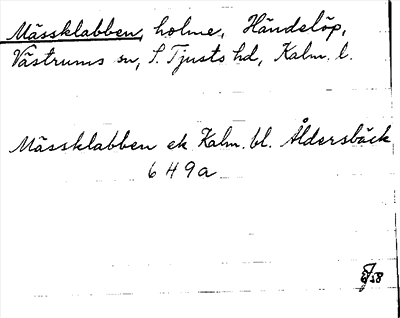 Mässklabben, holme, Händelöp,
Västrums sn, S. Tjusts hd, Kalm. l.
Mässklabben ek Kalm. bl. Åldersbäck
649a